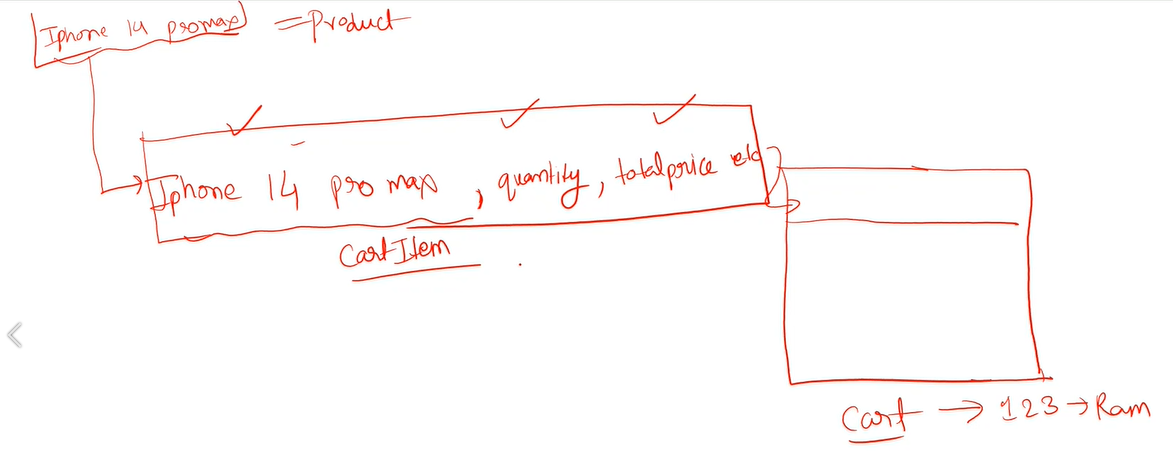 Iphone 14 promax = Product
Iphone 14 pro max, quantity, totalprice etc
CartItem
Cart → 123 → Ram